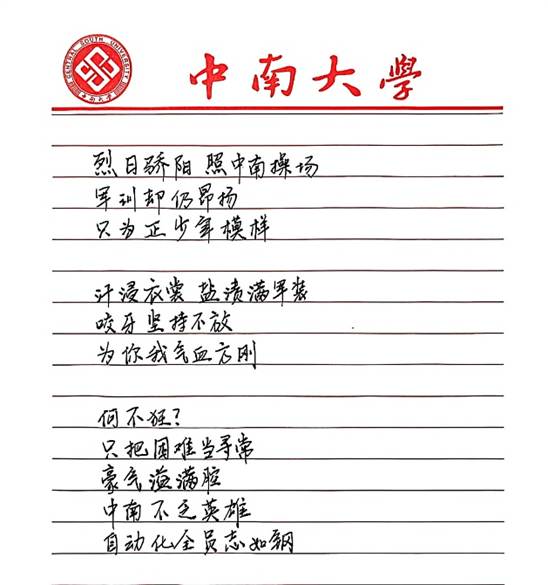 CENTRAL SOUTH UNIVERSITY
中南大学
中南大學
烈日骄阳 照中南操场
军训却仍昂扬
只为正少年模样
汗浸衣裳 盐渍满军装
咬牙坚持不放
为你我气血方刚
何不狂?
只把困难当寻常
豪气溢满腔
中南不乏英雄
自动化全员志如钢